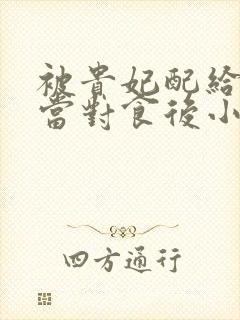 被貴妃配給
當對食後小
四方通行